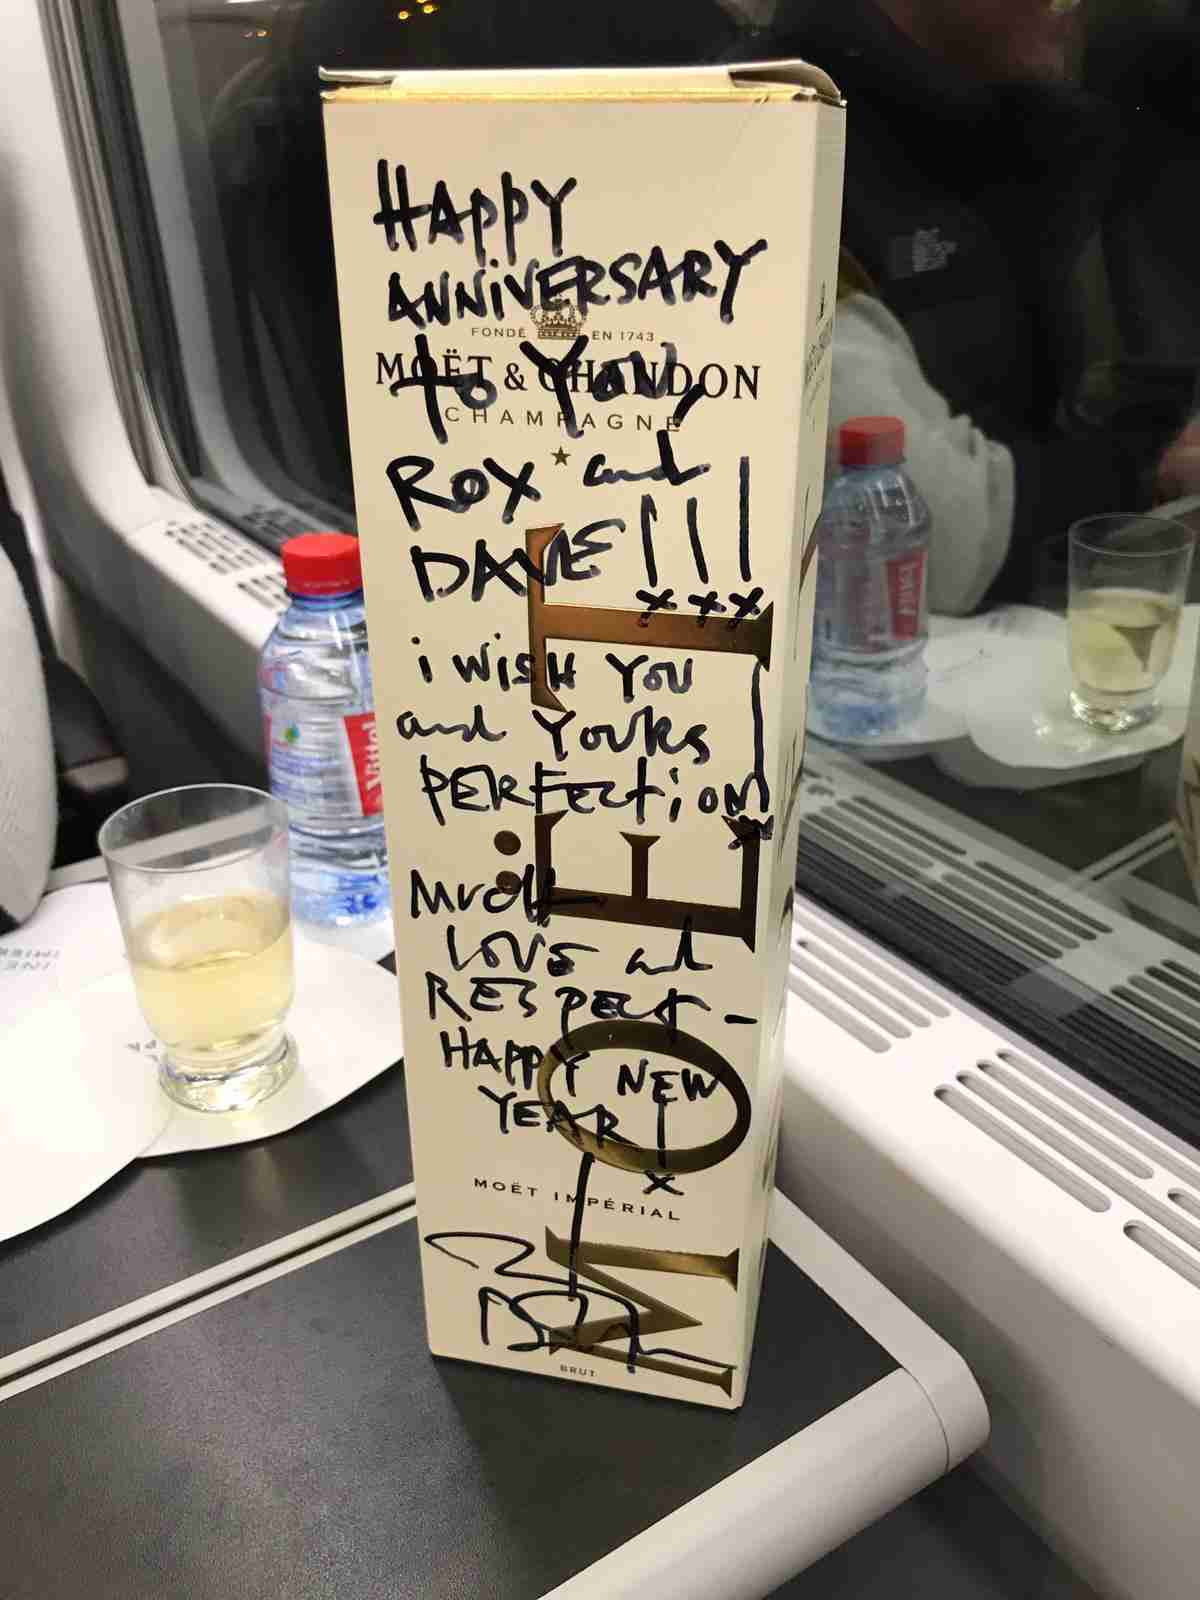 HAPPY
ANNIVERSARY
FONDÉ EN 1743
to YOU,
MOËT & CHANDON
CHAMPAGNE
ROX and
DAVE!!!
xxx
i WISH YOU
and YOURS
PERFECTiON!
MUCH
LOVE and
RESPECT -
HAPPY NEW
YEAR!
x
MOËT IMPÉRIAL
BRUT
MOËT
Vittel